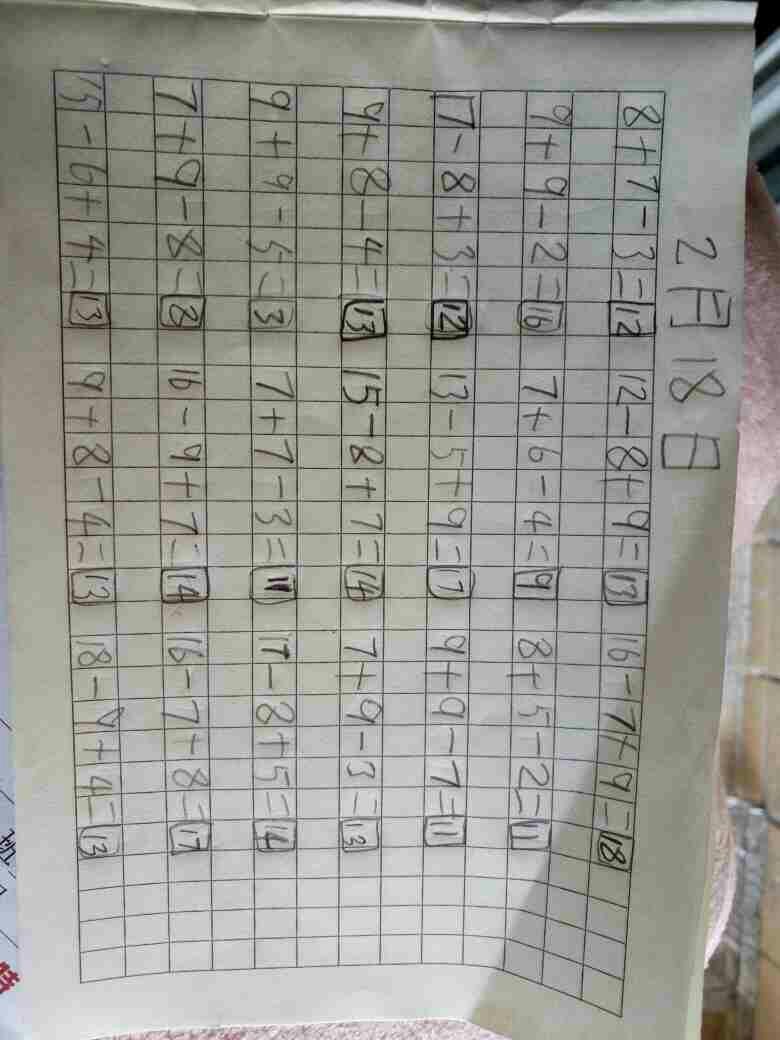 2月18日
8+7-3=12 12-8+9=13 16-7+9=18
9+9-2=16 7+6-4=9 8+5-2=11
17-8+3=12 13-5+9=17 9+9-7=11
9+8-4=13 15-8+7=14 7+9-3=13
9+9-5=3 7+7-3=11 17-8+5=14
7+9-8=8 16-9+7=14 16-7+8=17
15-6+4=13 9+8-4=13 18-9+4=13